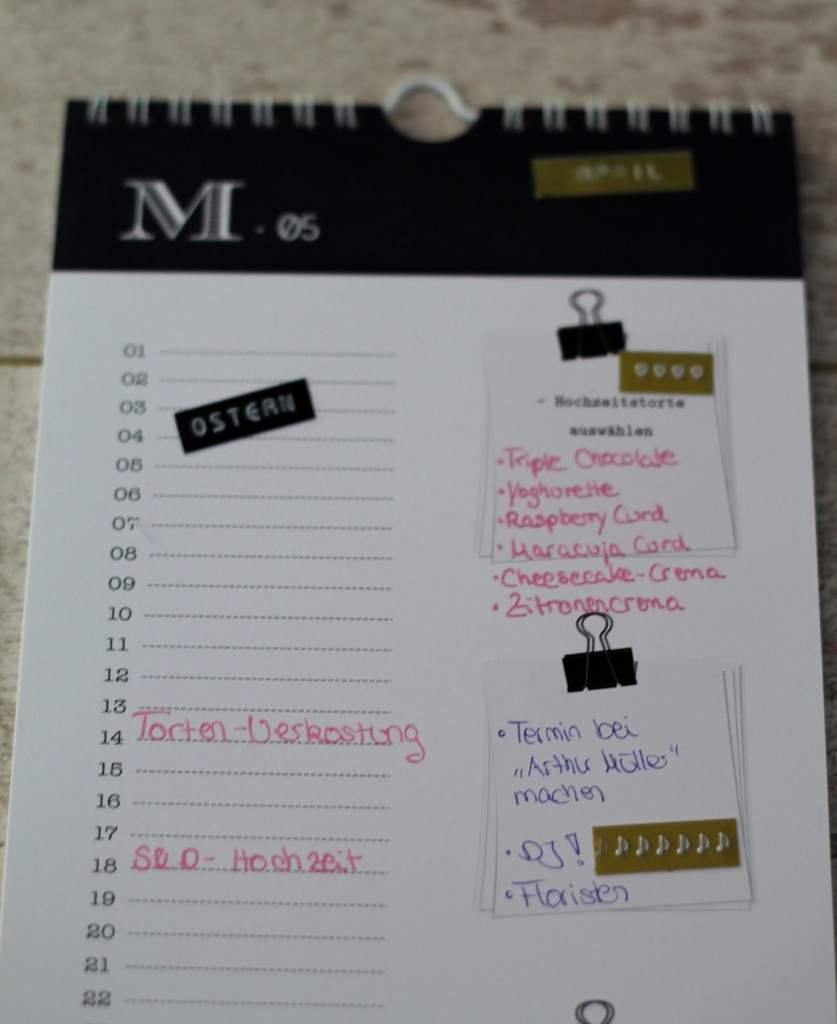 M - 05
APRIL
01
02
03
OSTERN
04
05
06
07
08
09
10
11
12
13
14 Torten-Verkostung
15
16
17
18 S&D- Hochzeit
19
20
21
22
- Hochzeitstorte
auswählen
• Triple Chocolate
• Yoghurette
• Raspberry Curd
• Maracuja Curd
• Cheesecake-Crema
• Zitronencrema
• Termin bei
„Arthur Müller“
machen
• DJ!
• Floristen